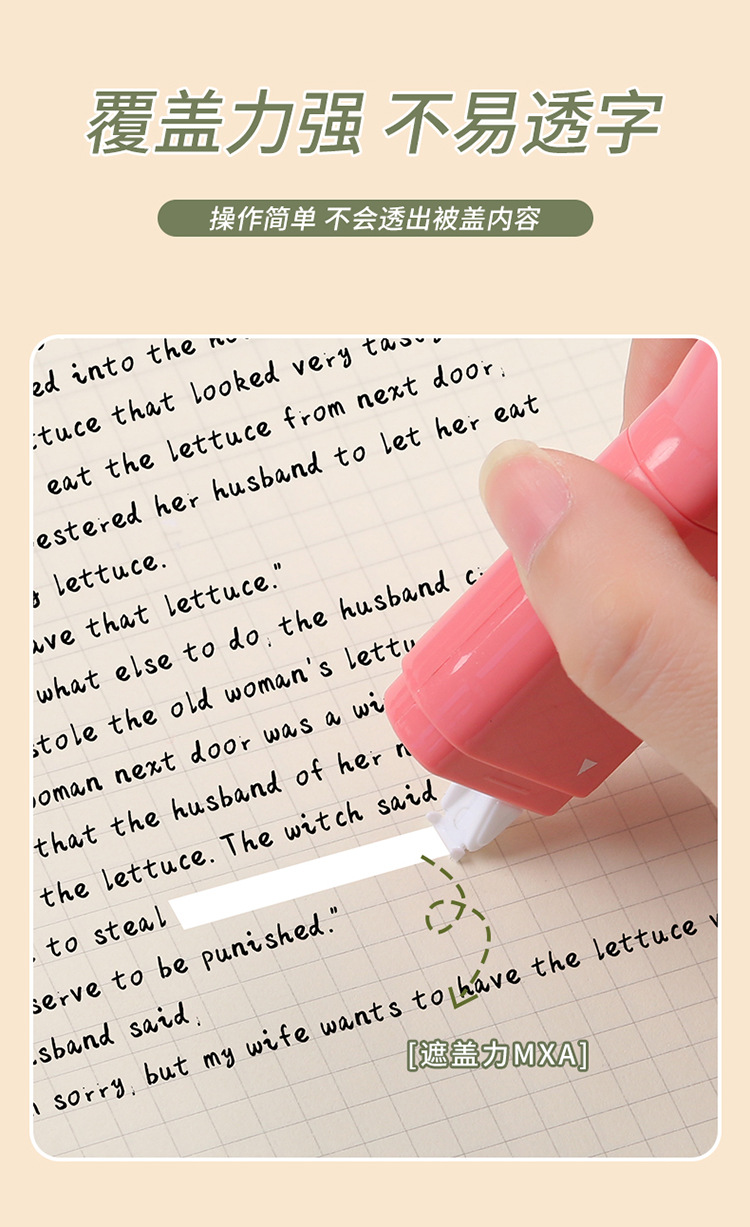 覆盖力强 不易透字
操作简单 不会透出被盖内容
ed into the
lettuce that looked very
eat the lettuce from next door,
pestered her husband to let her eat
lettuce.
have that lettuce."
what else to do, the husband
stole the old woman's
woman next door was a
that the husband of her
the lettuce. The witch said
to steal
serve to be punished."
husband said,
sorry, but my wife wants to have the lettuce
[遮盖力MXA]